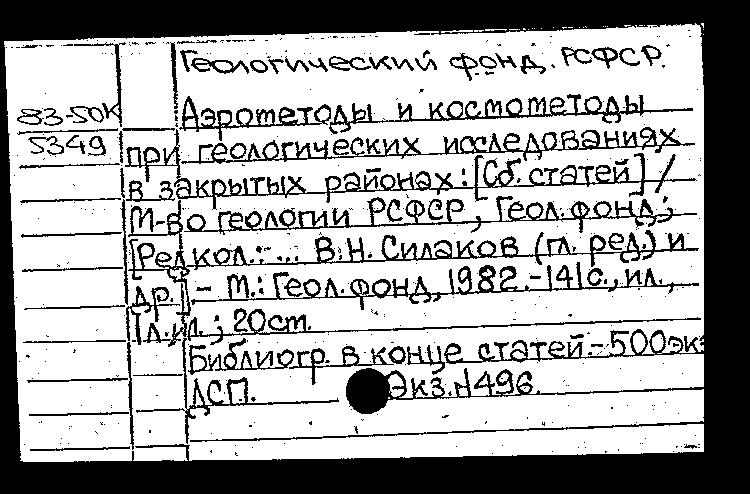 Геологический фонд. РСФСР.
83-50К Аэрометоды и космометоды
5349 при геологических исследованиях
в закрытых районах: [Сб. статей] /
М-во геологии РСФСР, Геол. фонд;
[Редкол.: ... В.Н. Силаков (гл. ред.) и
др.]. - М.: Геол. фонд, 1982. - 141с., ил.,
1л. ил.; 20см.
Библиогр. в конце статей. - 500экз
ДСП. Экз. N496.